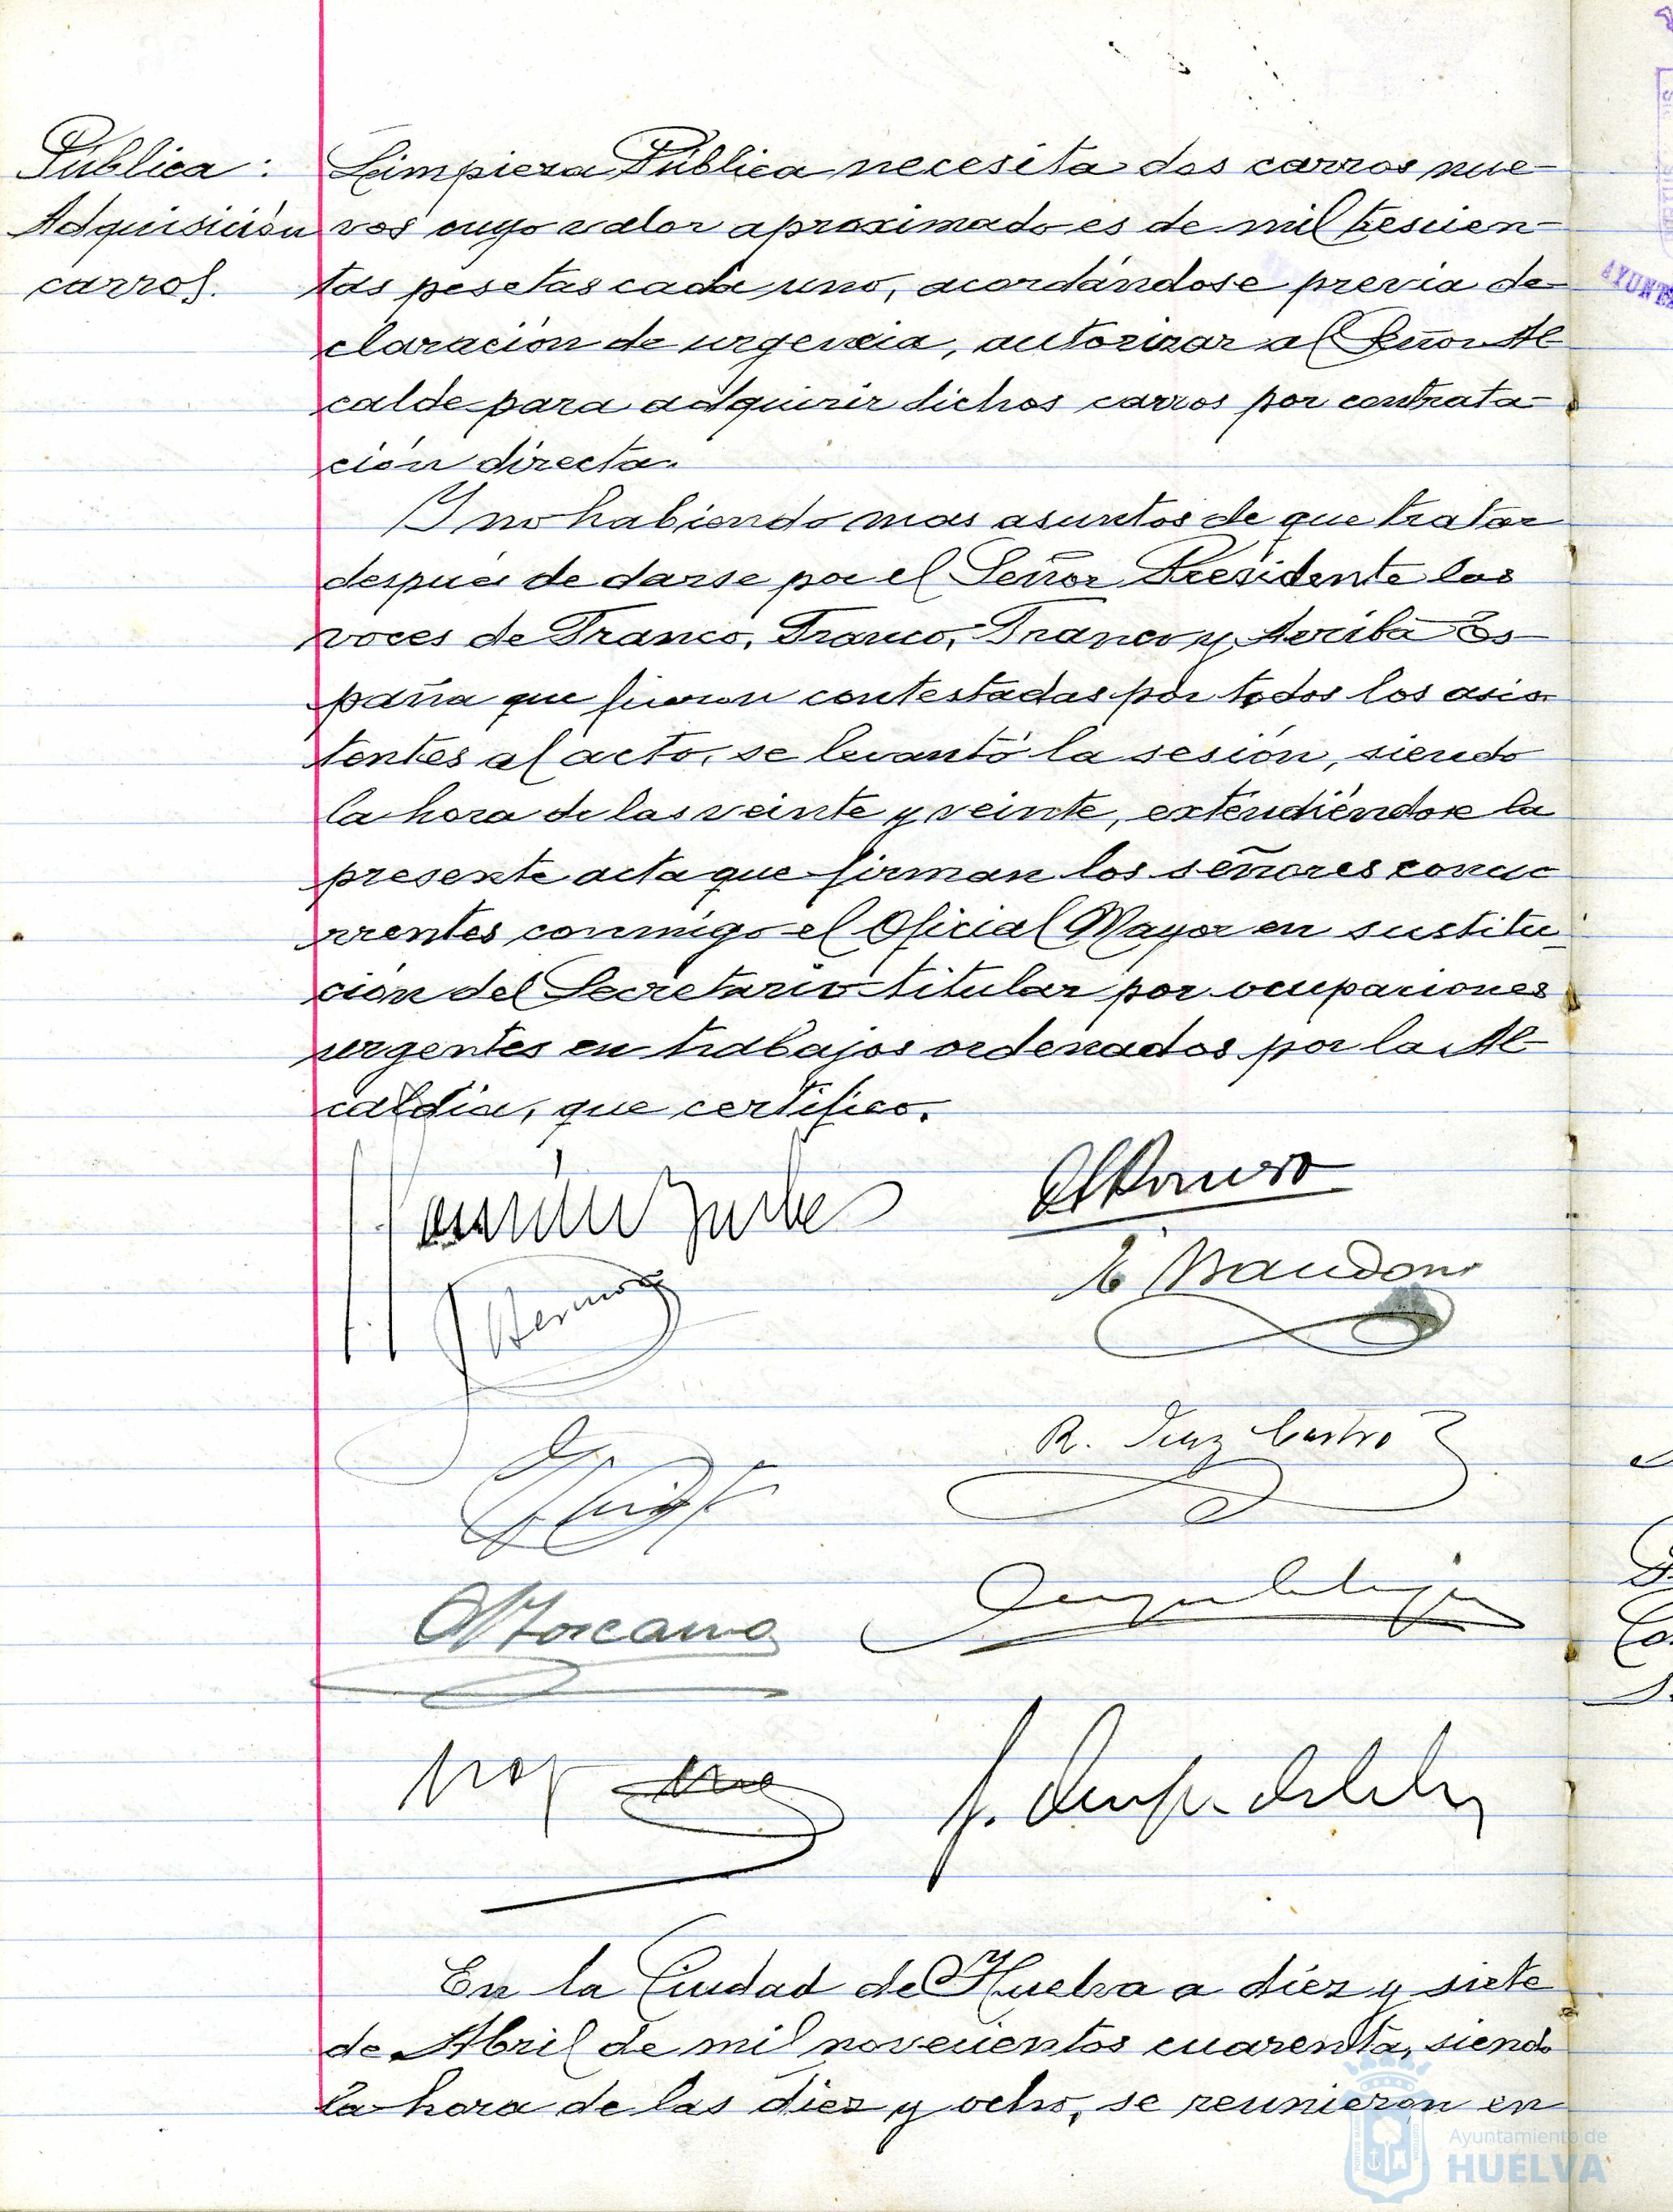 Pública:
Adquisición
carros.
Limpieza Pública necesita dos carros nue-
vos cuyo valor aproximado es de mil trescien-
tas pesetas cada uno, acordándose previa de-
claración de urgencia, autorizar al Señor Al-
calde para adquirir dichos carros por contrata-
ción directa.
Y no habiendo mas asuntos de que tratar
después de darse por el Señor Presidente las
voces de Franco, Franco, Franco y Arriba Es-
paña que fueron contestadas por todos los asis-
tentes al acto, se levantó la sesión, siendo
la hora de las veinte y veinte, extendiéndose la
presente acta que firman los señores concu-
rrentes conmigo el Oficial Mayor en sustitu-
ción del Secretario titular por ocupaciones
urgentes en trabajos ordenados por la Al-
caldía, que certifico.
R. Díaz Castro
En la Ciudad de Huelva a diez y siete
de Abril de mil novecientos cuarenta, siendo
la hora de las diez y ocho, se reunieron en
Ayuntamiento de
HUELVA